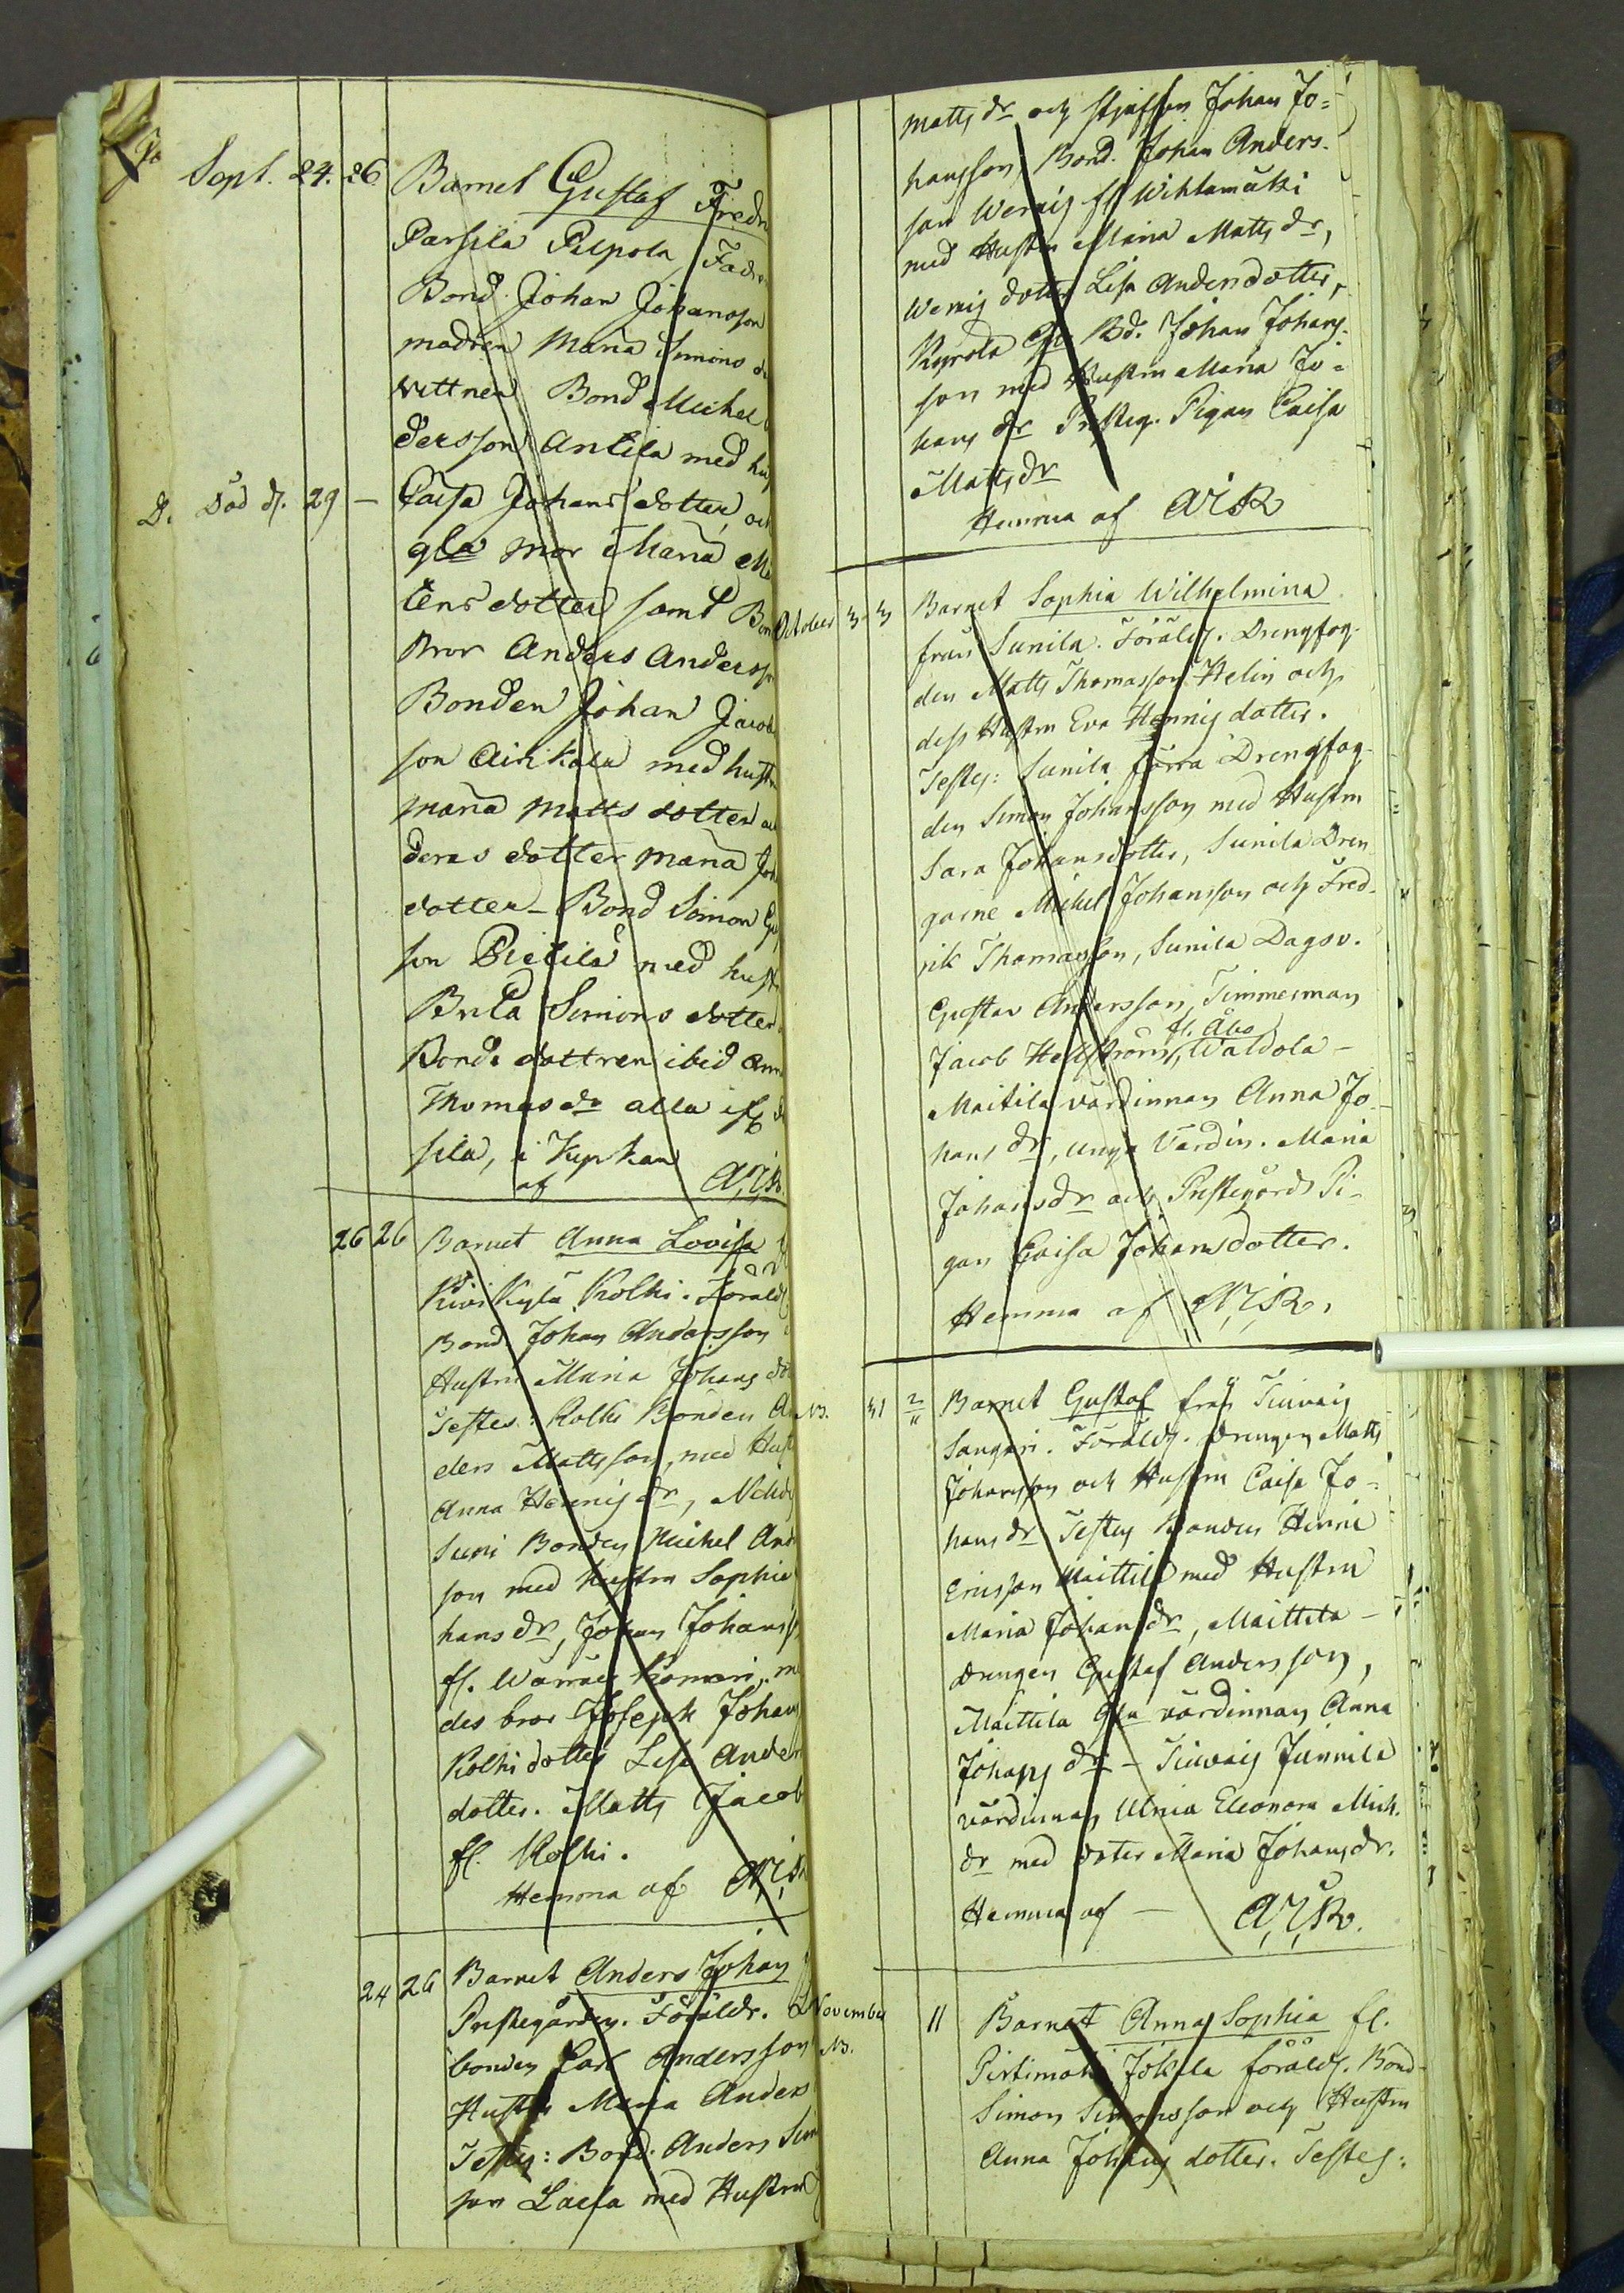 Sept. 24. 26. Barnet Gustaf Fredr
Parsila Pelpola, Fadr
Bond. Johan Johansson
modren Maria Simons d
vittnen Bond Michel
dersson Antila med hu
D. död d. 29 — Caisa Johans dotter oc
gla mor Maria M
tens dotter samt Bon
Mor Anders Anderss
Bonden Johan Jacob
son Airikala med hustr
Maria Matts dotter oc
deras dotter Maria Joh
dotter – Bond Simon
son med hustr
Brita Simons dotter
Bonde dottren ibid Ann
Thomas dr alla
sila, i Kyrkan
af A,I,R.
26 26 Barnet Anna Lovisa
Kivikylä Kolki. Föräld
Bond. Johan Andersson
Hustru Maria Johans do
Testes: Kolki Bonden A
ders Mattsson, med Hust
Anna Hennig dr,
Suni Bonden Michel And
son med Hustru Sophia
hans dr, Johan Johanss
fl.
des bror Joseph Johans
Kolki dotter Lisa Anders
dotter. Matts Jacob
fl. Kolki.
Hemma af A,I,R
24 26 Barnet Anders Johan
Prestegården. Föräldr. L
bonden Carl Andersson
Hustru Maria Anders
Testes: Bond. Anders Sim
son Laessa med Hustru
Matts dr och Johan Jo=
hansson, Bond. Johan Anders-
son
med Hustru Maria Matts dr,
dotter Lisa Andersdotter,
Bd. Johan Johans-
son med Hustru Maria Jo=
hans dr Pigan Caisa
Matts dr
Hemma af A I R
October 3 3 Barnet Sophia Wilhelmina
från Sunila. Föräldr. Drengfog-
den Matts Thomasson Helin och
dess Hustru Eva Hennig dotter.
Testes: Sunila förra Drengfog-
den Simon Johansson med Hustru
Sara Johansdotter, Sunila Dren
garne Michel Johansson och Fred-
rik Thomasson, Sunila Dagsv.
Gustav Andersson, Timmerman
fl. Åbo
Jacob Hellström, Waldola –
Maitila värdinnan Anna Jo-
hans dr, unga Värdin. Maria
Johansdr och Prestegårds Pi-
gan Caisa Johansdotter.
Hemma af A,I,R.
NB. 31 2/11 Barnet Gustaf från
Sangari. Föräldr. Drengen Matts
Johansson och Hustru Caisa Jo-
hans dr Testes Bonden Henric
Ericsson Maittila med Hustru
Maria Johans dr, Maittila –
Drengen Gustaf Andersson,
Maittila Gla värdinnan Anna
Johans dr – Junnila
värdinnan Ulrica Eleonora Mich.
dr med doter Maria Johans dr.
Hemma af — A,I,R.
November NB. 11 Barnet Anna Sophia fl.
Pirtimäki Jokela föräldr. Bond-
Simon Simonsson och Hustru
Anna Johans dotter. Testes: